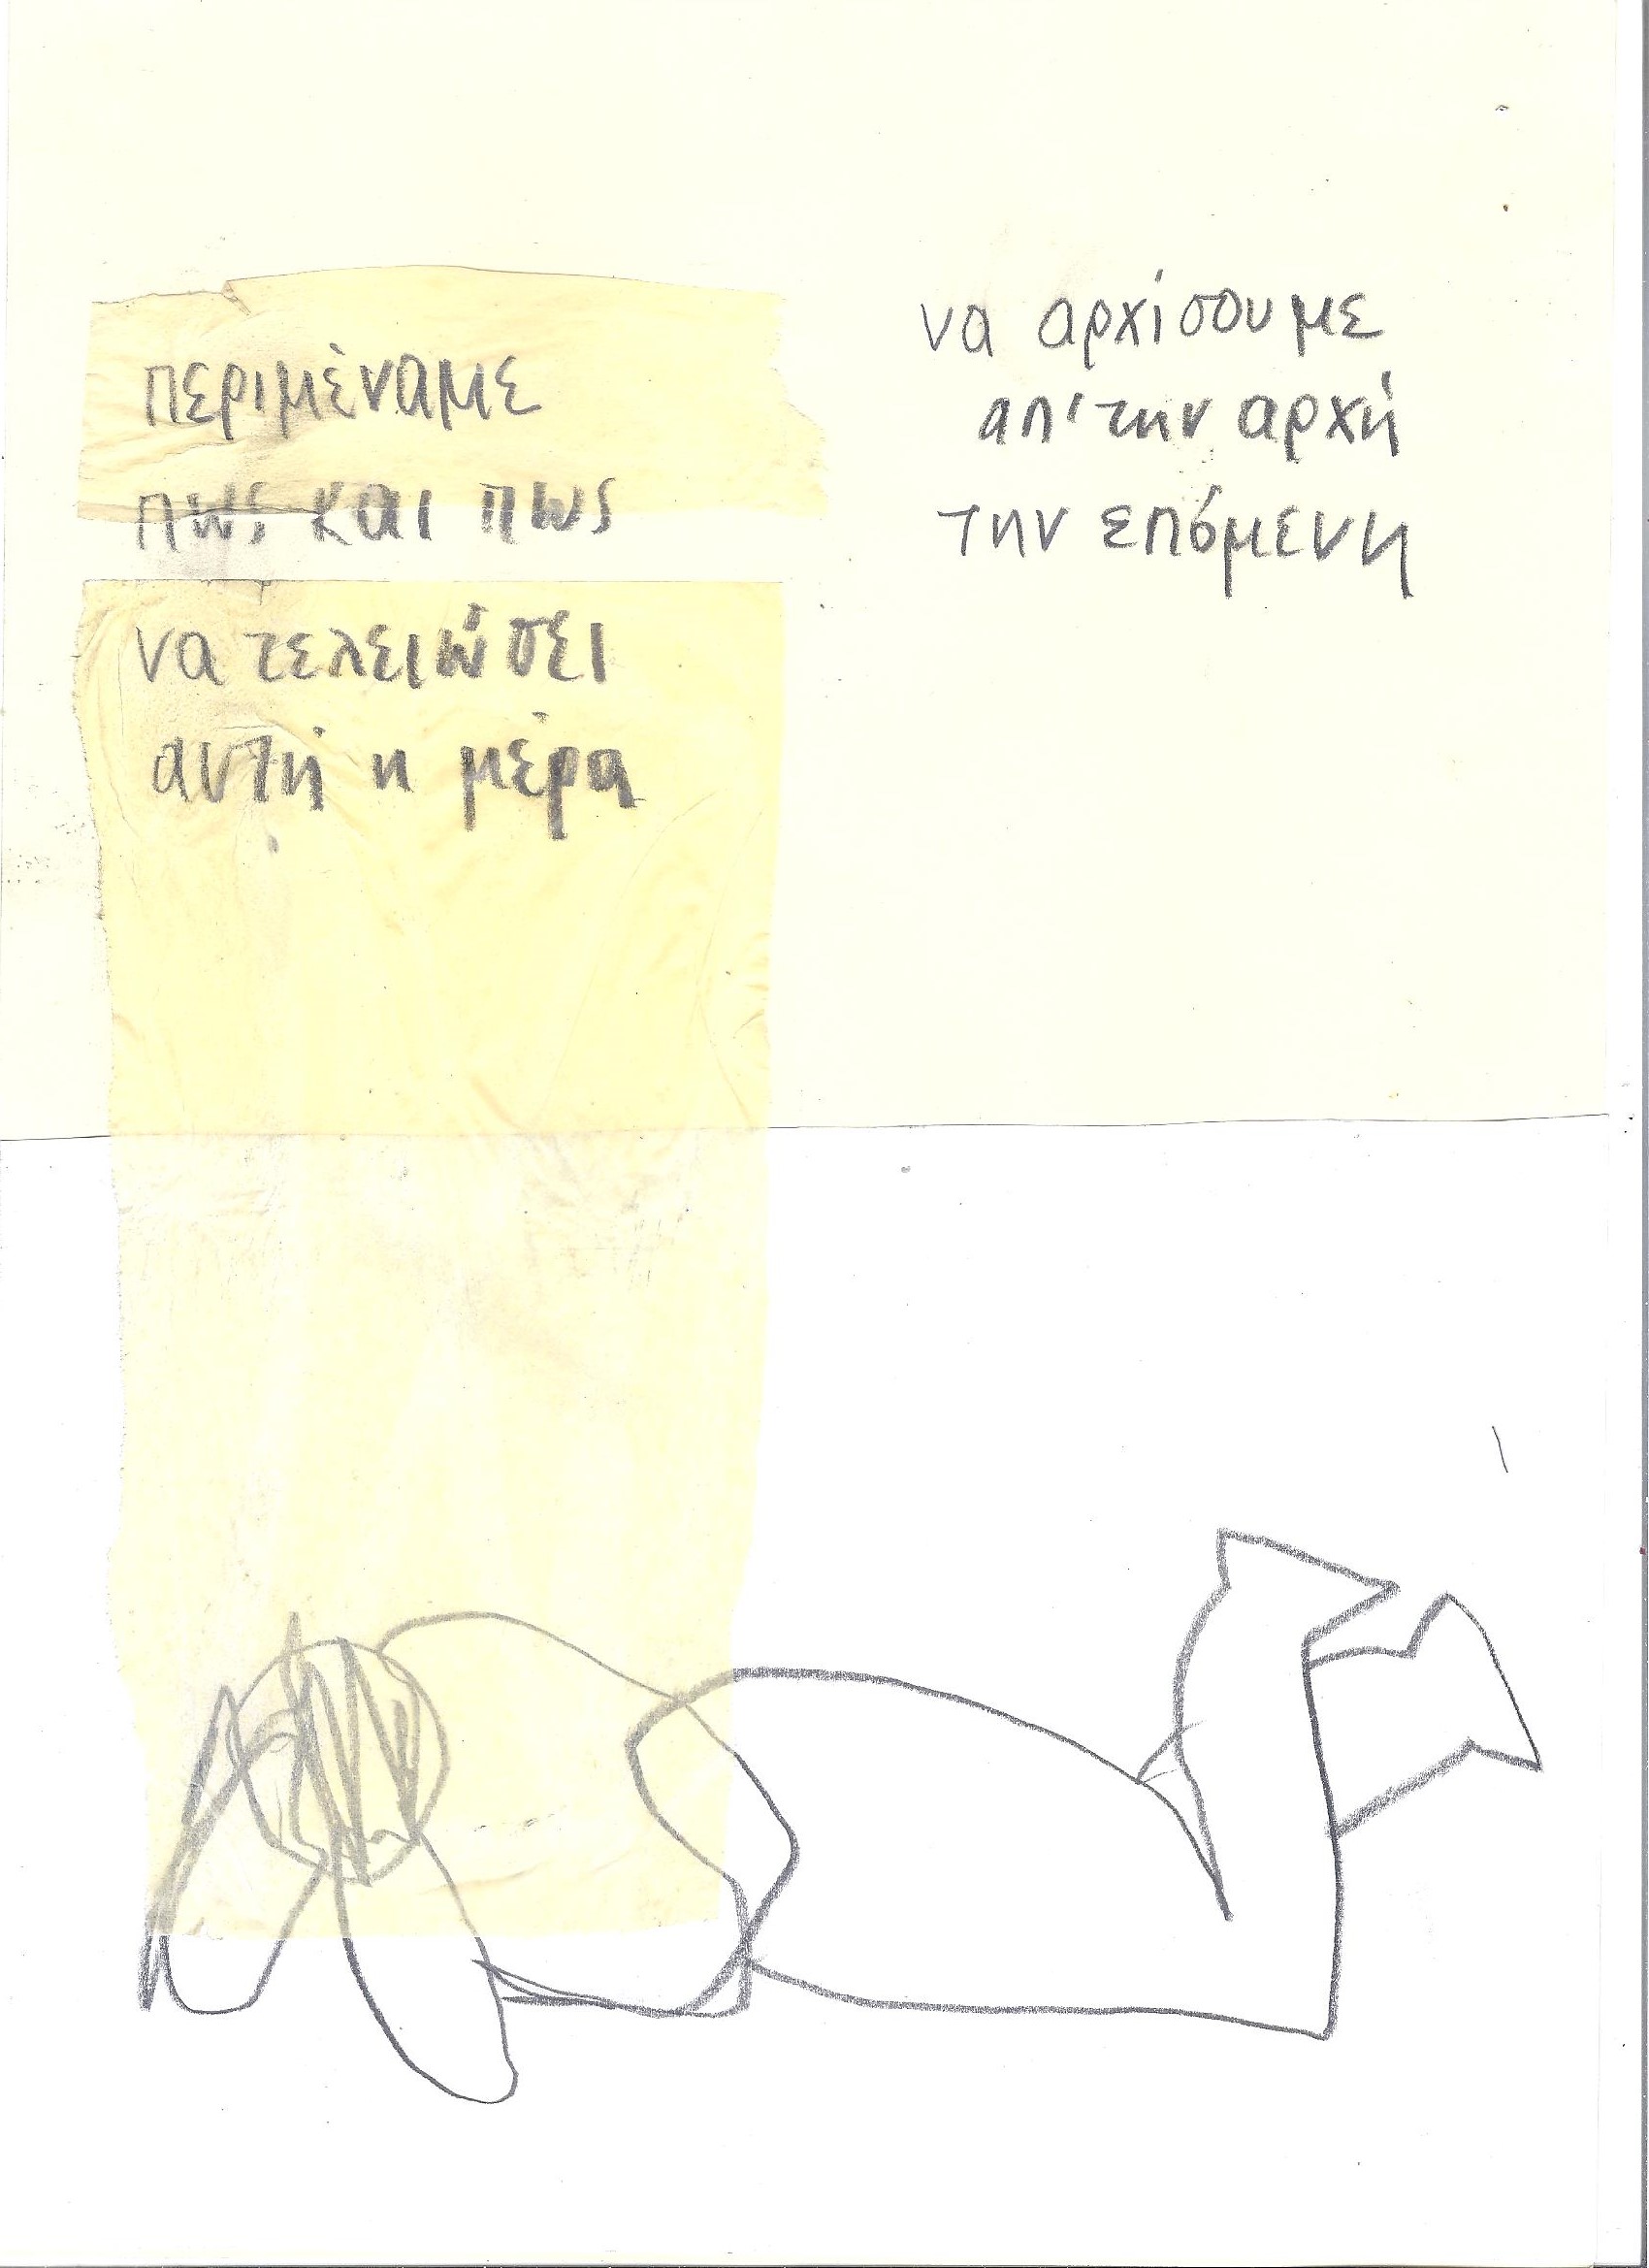 περιμέναμε
πως και πως
να τελειώσει
αυτή η μέρα
να αρχίσουμε
απ' την αρχή
την επόμενη